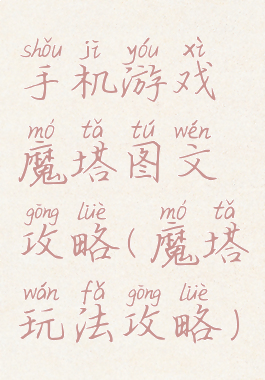 shǒu jī yóu xì
手机游戏
mó tǎ tú wén
魔塔图文
gōng lüè mó tǎ
攻略(魔塔
wán fǎ gōng lüè
玩法攻略)